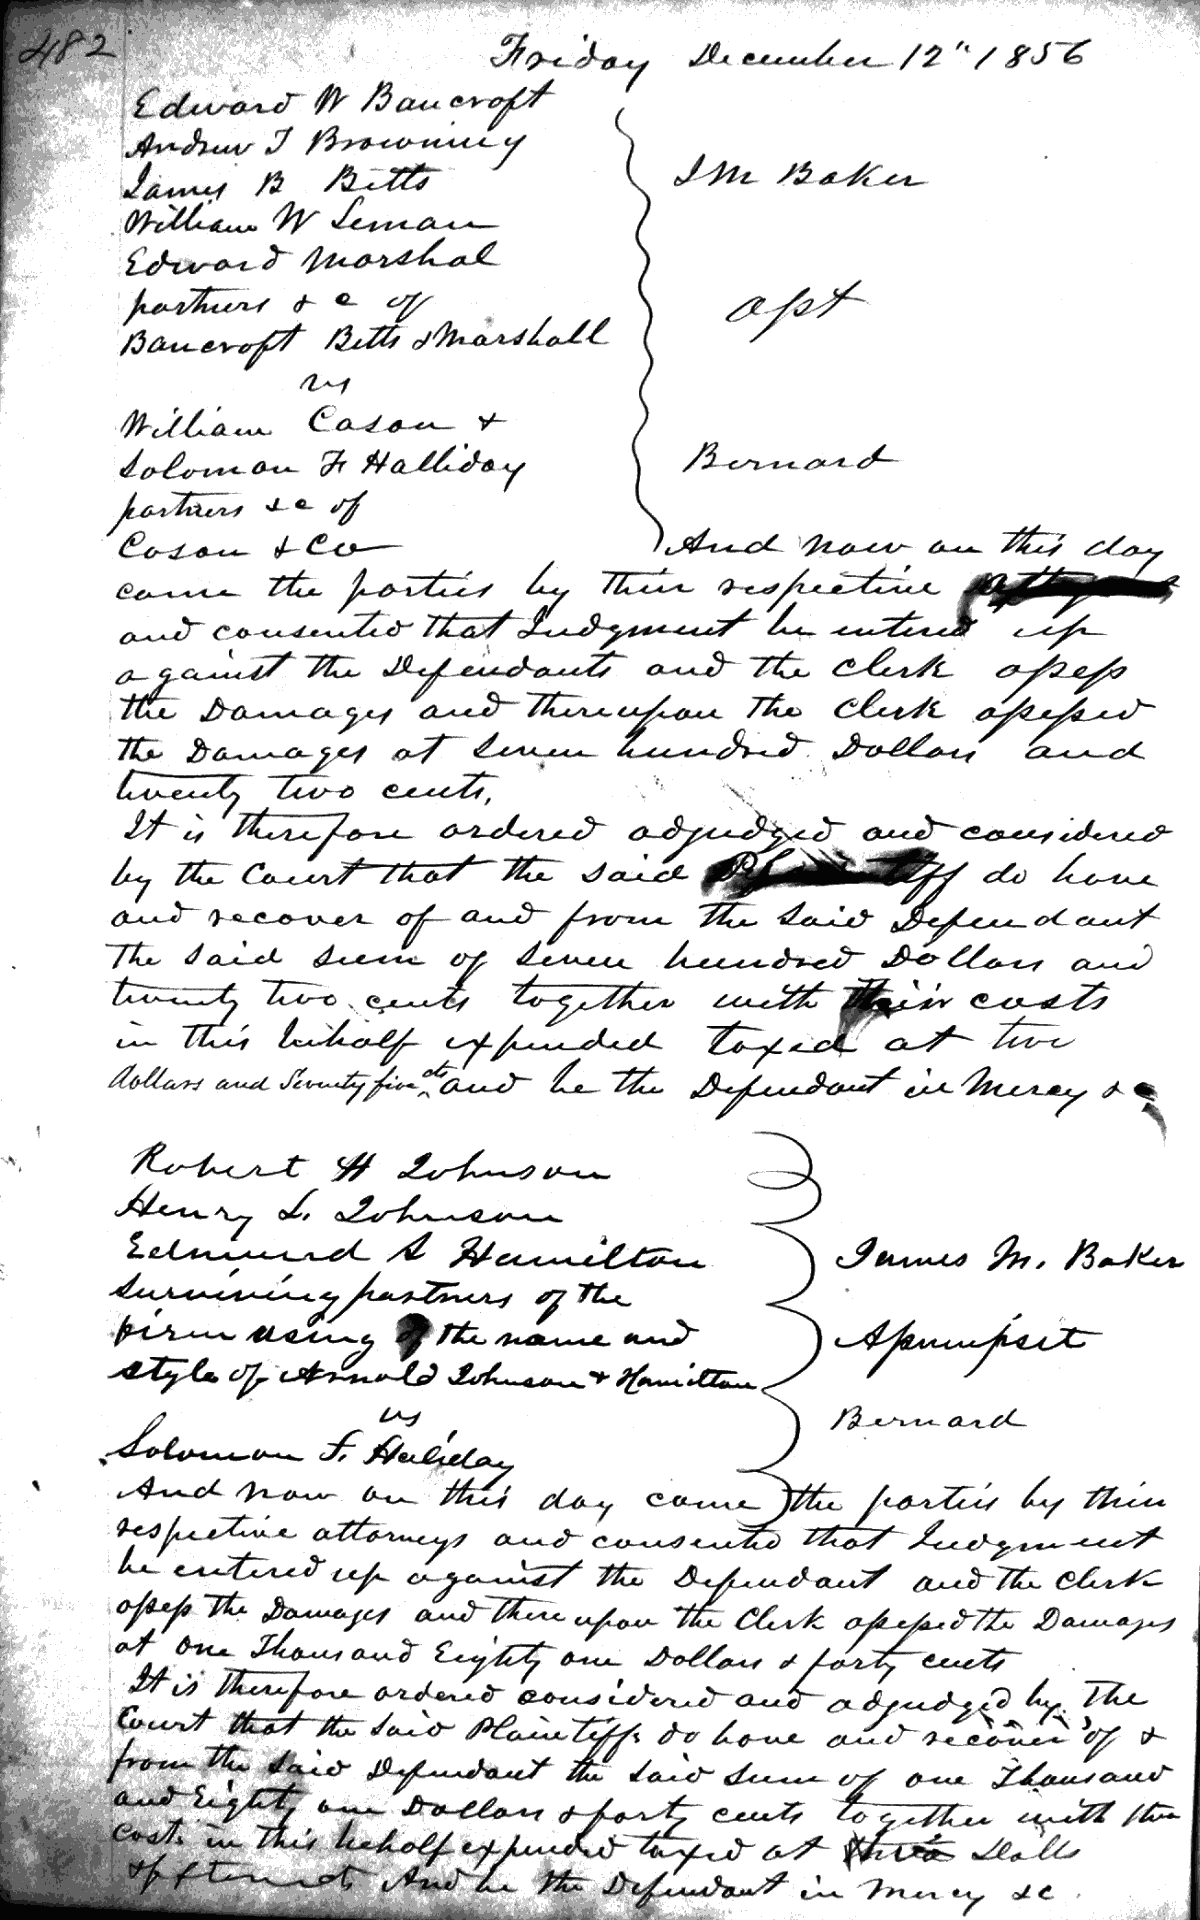 482
Friday December 12" 1856
Edward W Bancroft
Andrew J Browning
James B Betts
William W Leman
Edward Marshal
partners & c of
Bancroft Betts & Marshall
vs
William Cason &
Solomon F Halliday
partners &c of
Cason & Co
J M Baker
apt
Bernard
And now on this day
came the parties by their respective
and consented that Judgment be entered up
against the Defendants and the Clerk assess
the Damages and thereupon the Clerk assessed
the Damages at Seven hundred Dollars and
twenty two cents.
It is therefore ordered adjudged and considered
by the Court that the said Plaintiff do have
and recover of and from the said Defendant
the said sum of Seven hundred Dollars and
twenty two cents together with their costs
in this behalf expended taxed at two
dollars and Seventy five cts and be the Defendant in Mercy &c
Robert H Johnson
Henry L. Johnson
Edmund S Hamilton
surviving partners of the
firm using the name and
style of Arnold Johnson & Hamilton
vs
Solomon F. Haliday
James M. Baker
Assumpsit
Bernard
And now on this day came the parties by their
respective attorneys and consented that Judgment
be entered up against the Defendant and the Clerk
assess the Damages and there upon the Clerk assessed the Damages
at One Thousand Eighty one Dollars & forty cents
It is therefore ordered considered and adjudged by the
Court that the said Plaintiffs do have and recover of &
from the said Defendant the said sum of one Thousand
and Eighty one Dollars & forty cents together with their
costs in this behalf expended taxed at Dolls
And be the Defendant in Mercy &c.